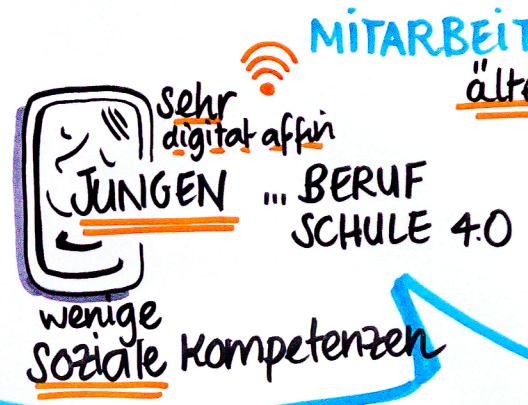 MITARBEIT
älte
sehr
digital affin
JUNGEN ... BERUF
SCHULE 4.0
wenige
soziale Kompetenzen